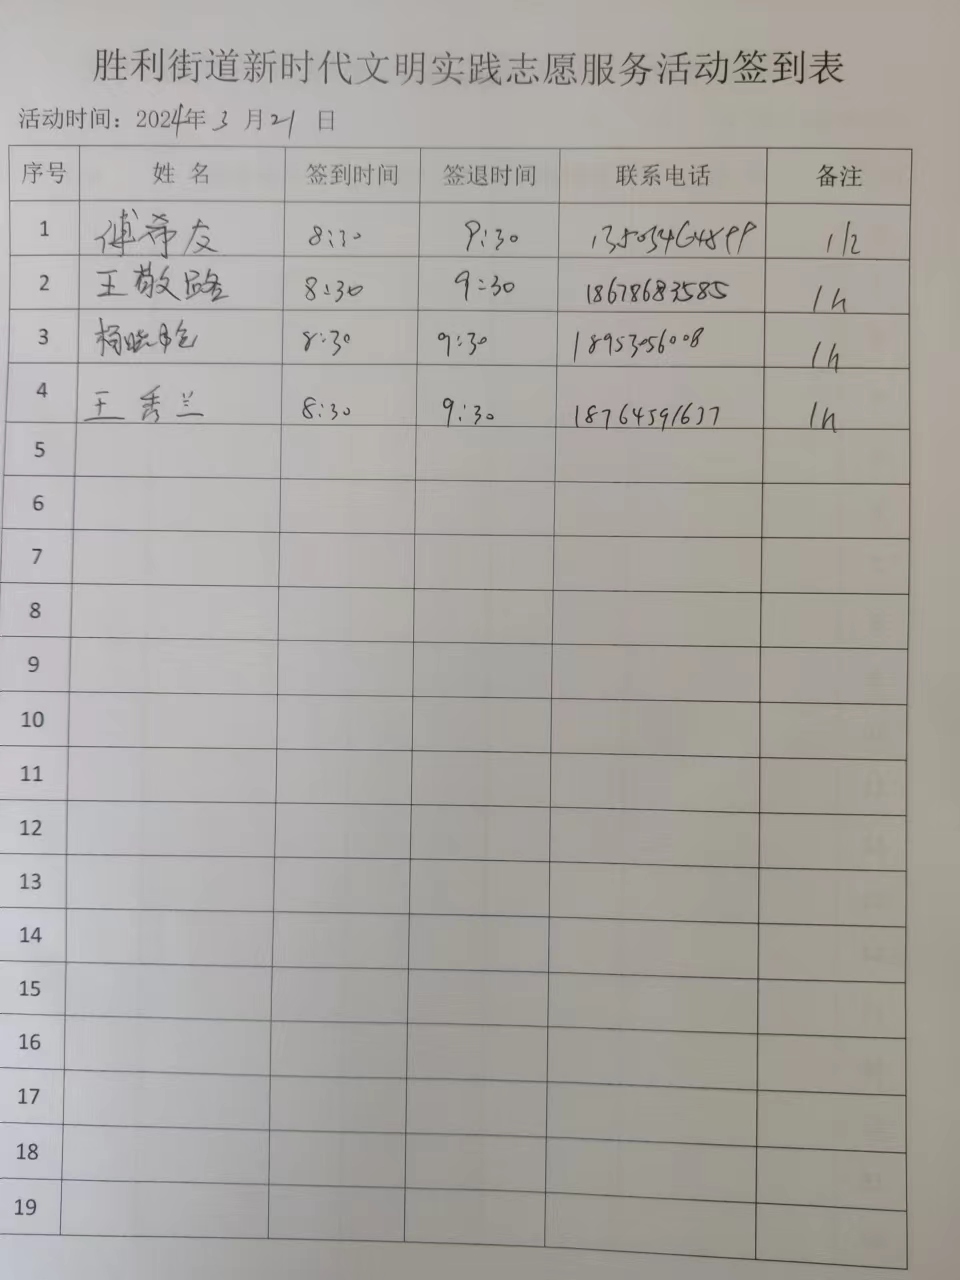 胜利街道新时代文明实践志愿服务活动签到表
活动时间：2024年3月21日
序号 姓名 签到时间 签退时间 联系电话 备注
1 傅希友 8:30 9:30 13503464899 1/2
2 王敬路 8:30 9:30 18678683585 1h
3 杨晓 8:30 9:30 18953056008 1h
4 王秀兰 8:30 9:30 18764591637 1h
5
6
7
8
9
10
11
12
13
14
15
16
17
18
19